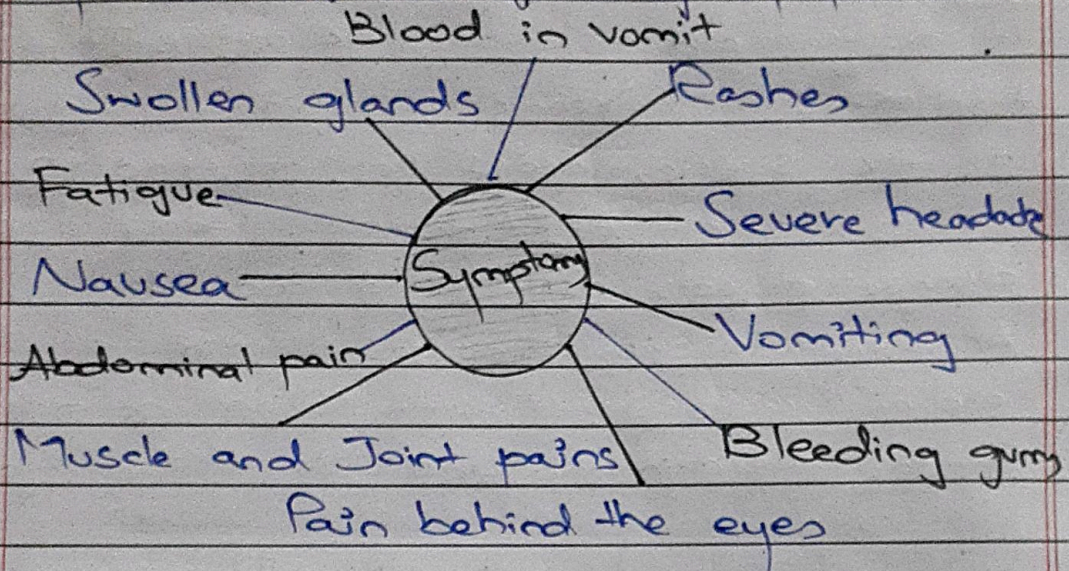 Blood in vomit
Swollen glands
Rashes
Fatigue
Severe headache
Nausea
Symptoms
Vomiting
Abdominal pain
Muscle and Joint pains
Bleeding gums
Pain behind the eyes